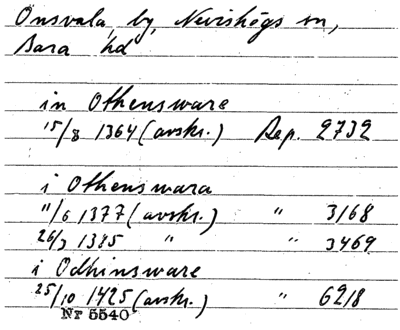 Onsvala, by, Nevishögs sn,
Bara hd
in Othensware
15/8 1364 (avskr.) Rep. 2732
i Othenswara
11/6 1377 (avskr.) " 3168
26/3 1385 " " 3469
i Odhinsware
25/10 1425 (avskr.) " 6218
Nr 5540